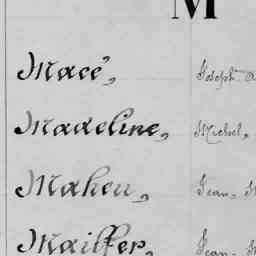 M
Macé, Joseph
Madeline, Michel,
Maheu, Jean,
Mailfer, Jean